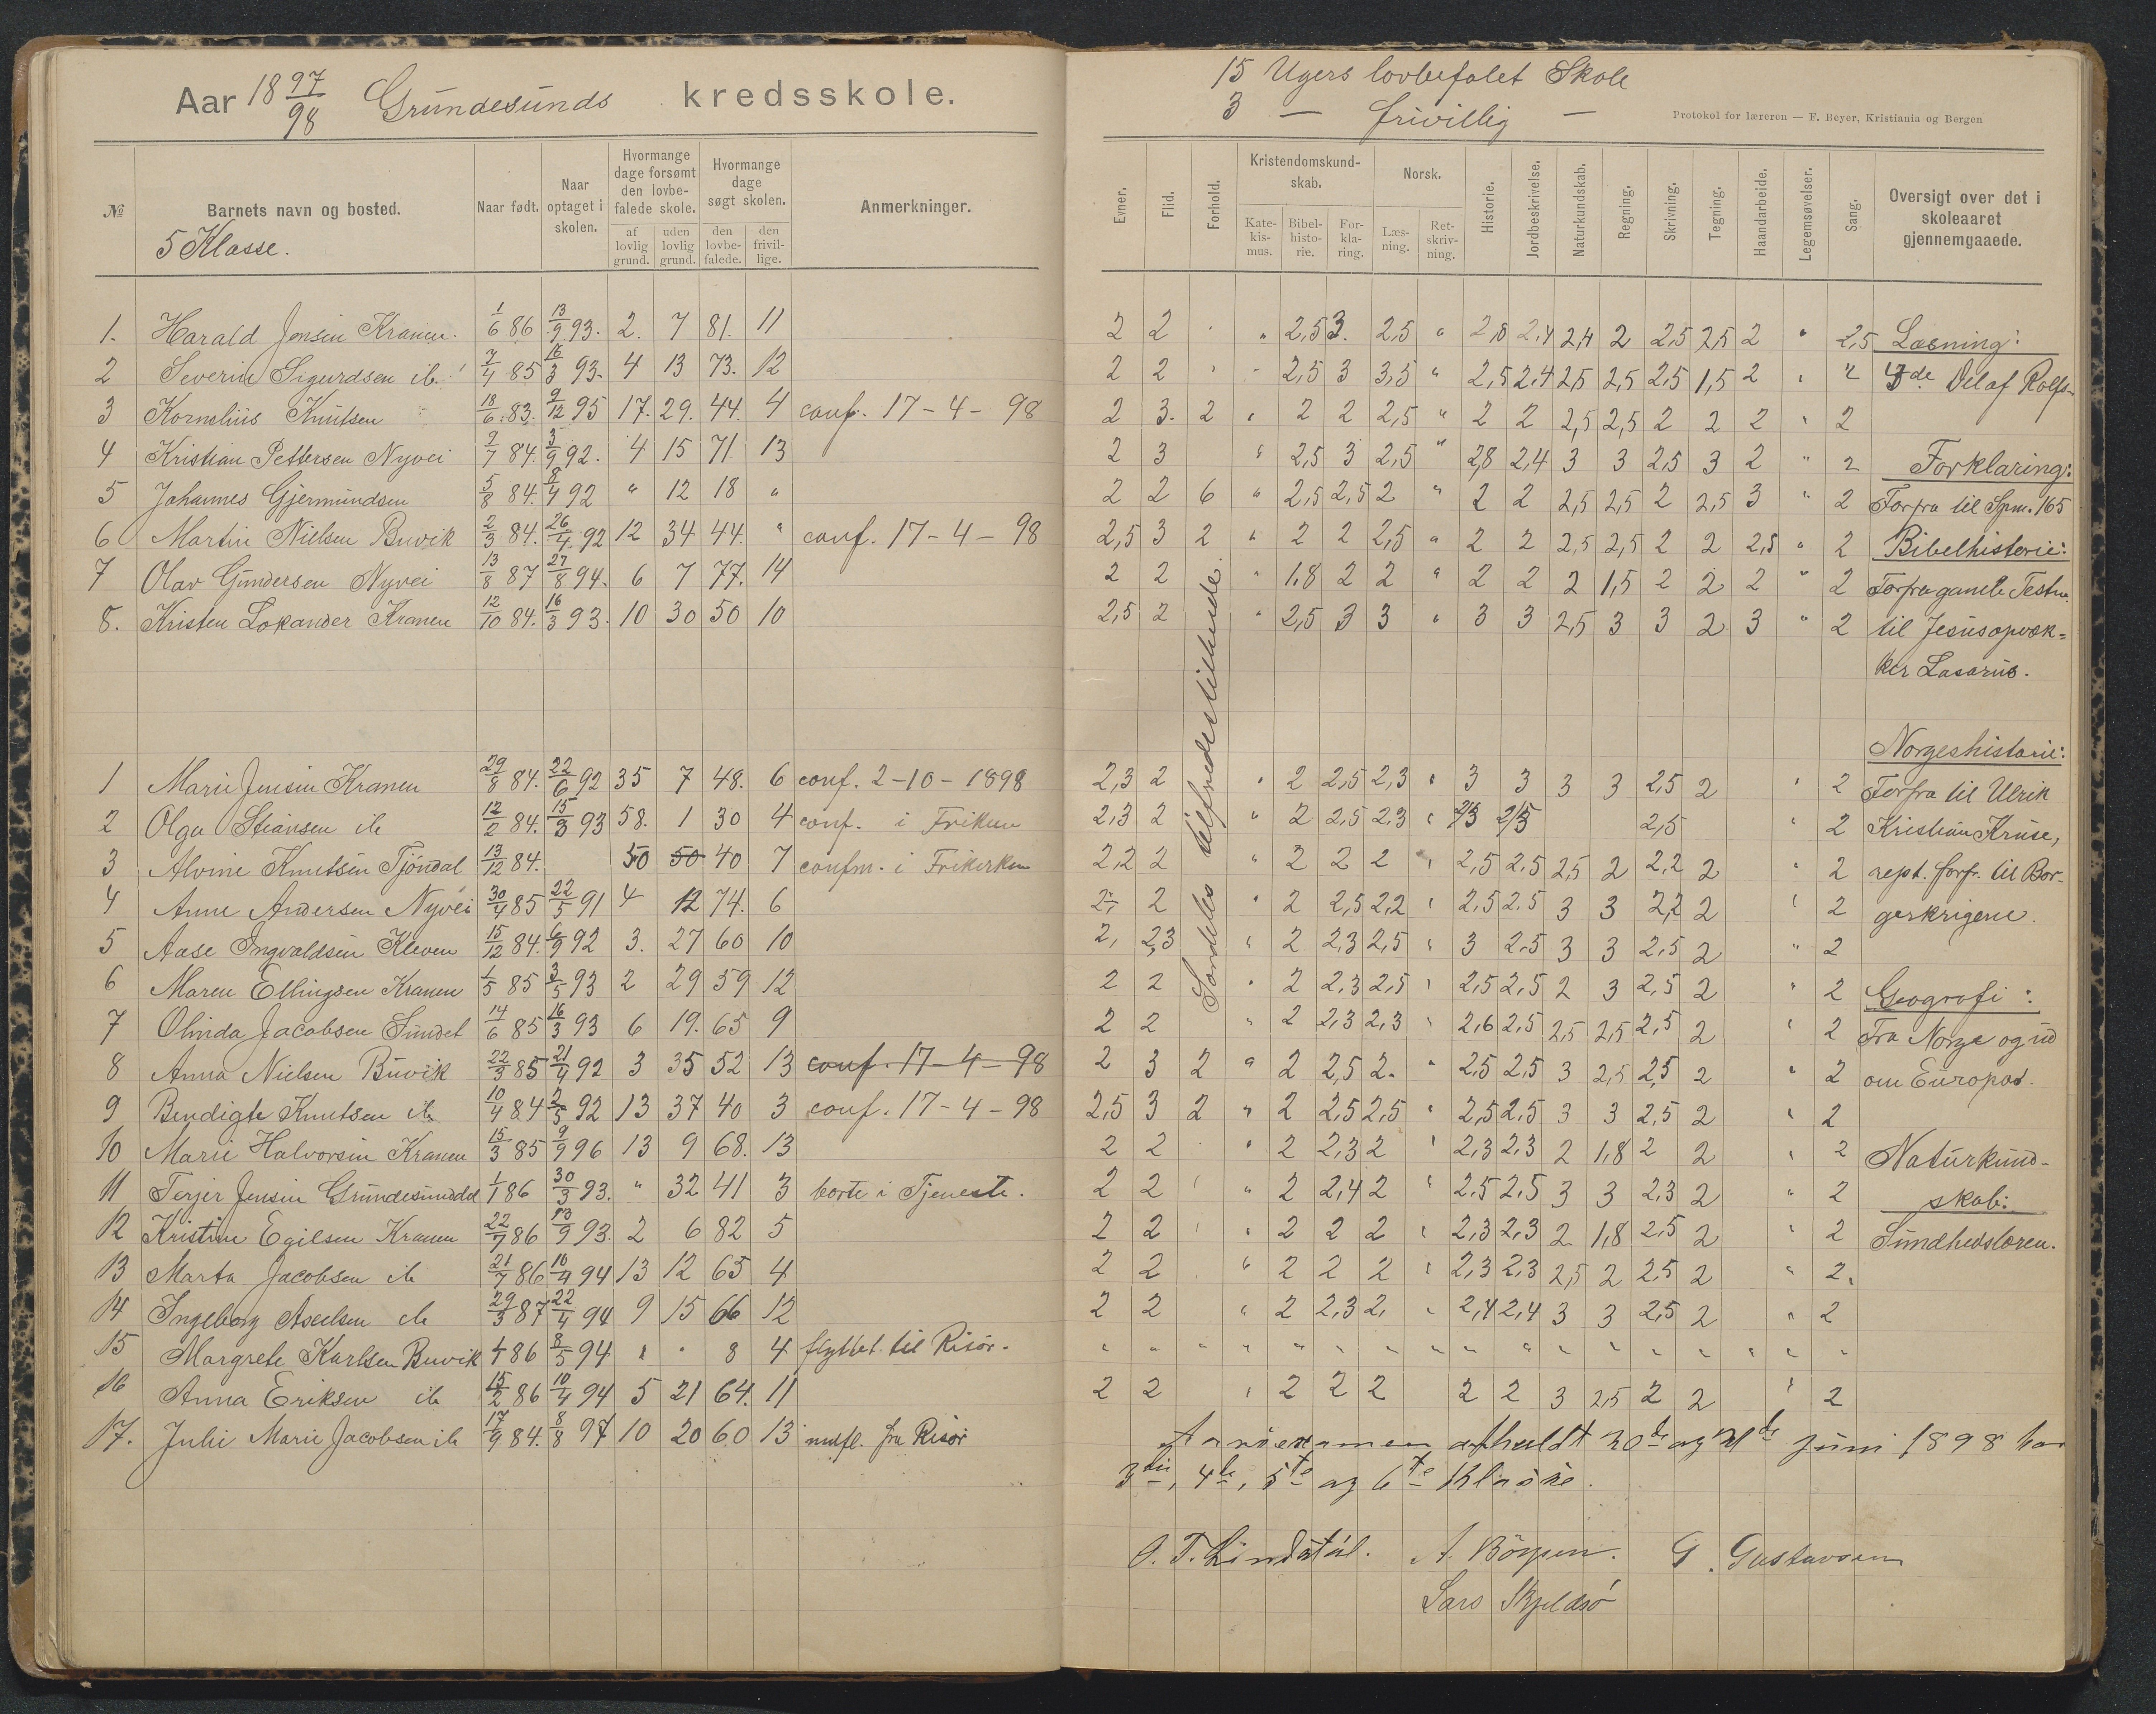 Aar 18 97/98 Grundesunds kredsskole.
№
Barnets navn og bosted.
Naar født.
Naar optaget i skolen.
Hvormange dage forsømt den lovbefalede skole.
af lovlig grund.
uden lovlig grund.
Hvormange dage søgt skolen.
den lovbefalede.
den frivillige.
Anmerkninger.
5 Klasse.
1. Harald Jensen Kranen. 1/6 86 13/9 93. 2. 7 81. 11
2 Severin Sigurdsen ib. 7/4 85 16/3 93. 4 13 73. 12
3 Kornelius Knutsen 18/6 83. 9/12 95 17. 29. 44. 4 conf. 17-4-98
4 Kristian Pettersen Nyvei 9/7 84. 3/9 92. 4 15 71. 13
5 Johannes Gjermundsen 5/8 84. 8/4 92 " 12 18 "
6 Martin Nielsen Buvik 2/3 84. 26/4 92 12 34 44. " conf. 17-4-98
7 Olav Gundersen Nyvei 13/8 87 27/8 94. 6 7 77. 14
8. Kristen Lokander Kranen 12/10 84. 16/3 93. 10 30 50 10
1 Marie Jensen Kranen 29/8 84. 22/6 92 35 7 48. 6 conf. 2-10-1898
2 Olga Stiansen ib 12/2 84. 15/3 93 58. 1 30 4 conf. i Frikken
3 Alvine Knutsen Tjöndal 13/12 84. 50 50 40 7 confm. i Frikirken
4 Anne Andersen Nyvei 30/4 85 22/5 91 4 12 74. 6
5 Aase Ingvaldsen Kleven 15/12 84. 6/9 92 3. 27 60 10
6 Maren Ellingsen Kranen 1/5 85 3/5 93 2 29 59 12
7 Olinda Jacobsen Sundet 14/6 85 16/3 93 6 19. 65 9
8 Anna Nielsen Buvik 22/3 85 21/4 92 3 35 52 13 conf. 17-4-98
9 Bendigte Knutsen ib 10/4 84 2/5 92 13 37 40 3 conf. 17-4-98
10 Marie Halvorsen Kranen 15/3 85 9/9 96 13 9 68. 13
11 Terjer Jensen Grundesunddal 1/1 86 30/3 93. " 32 41 3 borte i Tjeneste.
12 Kristine Egilsen Kranen 22/7 86 13/9 93. 2 6 82 5
13 Marta Jacobsen ib 21/7 86 10/4 94 13 12 65 4
14 Ingeborg Axelsen ib 29/3 87 22/4 94 9 15 66 12
15 Margrete Karlsen Buvik 1/1 86 8/5 94 " " 8 4 flyttet til Risör.
16 Anna Eriksen ib 15/2 86 10/4 94 5 21 64. 11
17. Julie Marie Jacobsen ib 17/9 84. 8/8 97 10 20 60 13 indfl. fra Risör
15 Ugers lovbefalet Skole
3 — frivillig —
Protokol for læreren — F. Beyer, Kristiania og Bergen
Evner.
Flid.
Forhold.
Kristendomskundskab.
Katekismus.
Bibelhistorie.
Forklaring.
Norsk.
Læsning.
Retskrivning.
Historie.
Jordbeskrivelse.
Naturkundskab.
Regning.
Skrivning.
Tegning.
Haandarbeide.
Legemsøvelser.
Sang.
Oversigt over det i skoleaaret gjennemgaaede.
Særdeles tilfredsstillende.
2 2 " 2,5 3. 2,5 " 2,8 2,4 2,4 2 2,5 2,5 2 " 2,5 Læsning:
2 2 " 2,5 3 3,5 " 2,5 2,4 2,5 2,5 2,5 1,5 2 " 2 de Del af Rolfs-
2 3. 2 " 2 2 2,5 " 2 2 2,5 2,5 2 2 2 " 2
2 3 " 2,5 3 2,5 " 2,8 2,4 3 3 2,5 3 2 " 2 Forklaring:
2 2 6 " 2,5 2,5 2 " 2 2 2,5 2,5 2 2,5 3 " 2 Forfra til Spm. 165
2,5 3 2 " 2 2 2,5 " 2 2 2,5 2,5 2 2 2,5 " 2 Bibelhistorie:
2 2 " 1,8 2 2 " 2 2 2 1,5 2 2 2 " 2 Forfra gamle Testm.
2,5 2 " 2,5 3 3 " 3 3 2,5 3 3 2 3 " 2 til Jesus opvæk=
ker Lasarus.
Norgeshistorie:
2,3 2 " 2 2,5 2,3 " 3 3 3 3 2,5 2 " 2 Forfra til Ulrik
2,3 2 " 2 2,5 2,3 " 2,3 2,5 2,5 " 2 Kristian Kruse,
2,2 2 " 2 2 2 " 2,5 2,5 2,5 2 2,2 2 " 2 rept. forfr. til Bor-
2, 2 " 2 2,5 2,2 " 2,5 2,5 3 3 2,2 2 " 2 gerkrigene.
2, 2,3 " 2 2,3 2,5 " 3 2,5 3 3 2,5 2 " 2
2 2 " 2 2,3 2,5 " 2,5 2,5 2 3 2,5 2 " 2 Geografi:
2 2 " 2 2,3 2,3 " 2,6 2,5 2,5 2,5 2,5 2 " 2 Fra Norge og ud
2 3 2 " 2 2,5 2. " 2,5 2,5 3 2,5 2,5 2 " 2 om Europas.
2,5 3 2 " 2 2,5 2,5 " 2,5 2,5 3 3 2,5 2 " 2
2 2 " 2 2,3 2 " 2,3 2,3 2 1,8 2 2 " 2 Naturkund-
2 2 " 2 2,4 2 " 2,5 2,5 3 3 2,3 2 " 2 skab:
2 2 " 2 2 2 " 2,3 2,3 2 1,8 2,5 2 " 2 Sundhedslæren.
2 2 " 2 2 2 " 2,3 2,3 2,5 2 2,5 2 " 2.
2 2 " 2 2,3 2, " 2,4 2,4 3 3 2,5 2 " 2
" " " " " " " " " " " " " " " " "
2 2 " 2 2 2 2 2 3 2,5 2 2 " 2
Aarsexamen afholdt 20de og 21de Juni 1898 for
3die, 4de, 5te og 6te Klasse.
O. T. Lindstöl. A. G. Gustavsen
Lars Skjeldsö